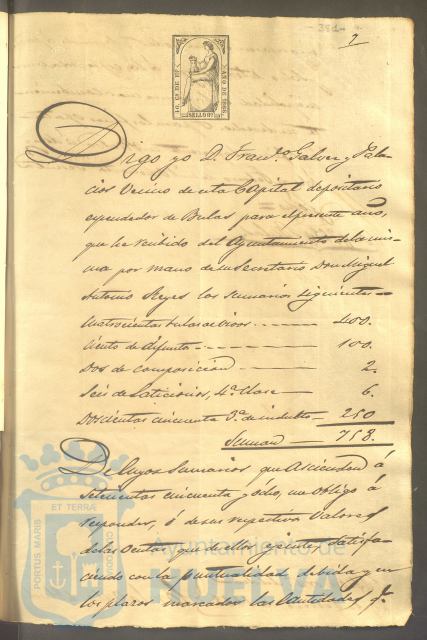 2
SELLO 9º
AÑO DE 186
Digo yo D. Franco. Galvez y Pala-
cios Vecino de esta Capital depositario
expendedor de Bulas para el presente año,
que he recibido del Ayuntamiento de la mis-
ma por mano de su Secretario Don Miguel
Antonio Reyes los sumarios siguientes
Cuatrocientas bulas de vivos 400.
Ciento de difuntos 100.
Dos de composicion 2.
Seis de Lacticinios, 4ª. Clase 6.
Doscientas cincuenta 3ª. de indulto 250
Suman 758.
De cuyos Sumarios que Ascienden á
Setecientos cincuenta y ocho, me obligo á
responder, ó de sus respectivos Valores
de las Ventas que de ellos ejecute, satisfa-
ciendo con la puntualidad debida y en
los plazos marcados las Cantidades qe.
Ayuntamiento de
HUELVA
PORTUS MARIS
ET TERRÆ
CUSTODIA